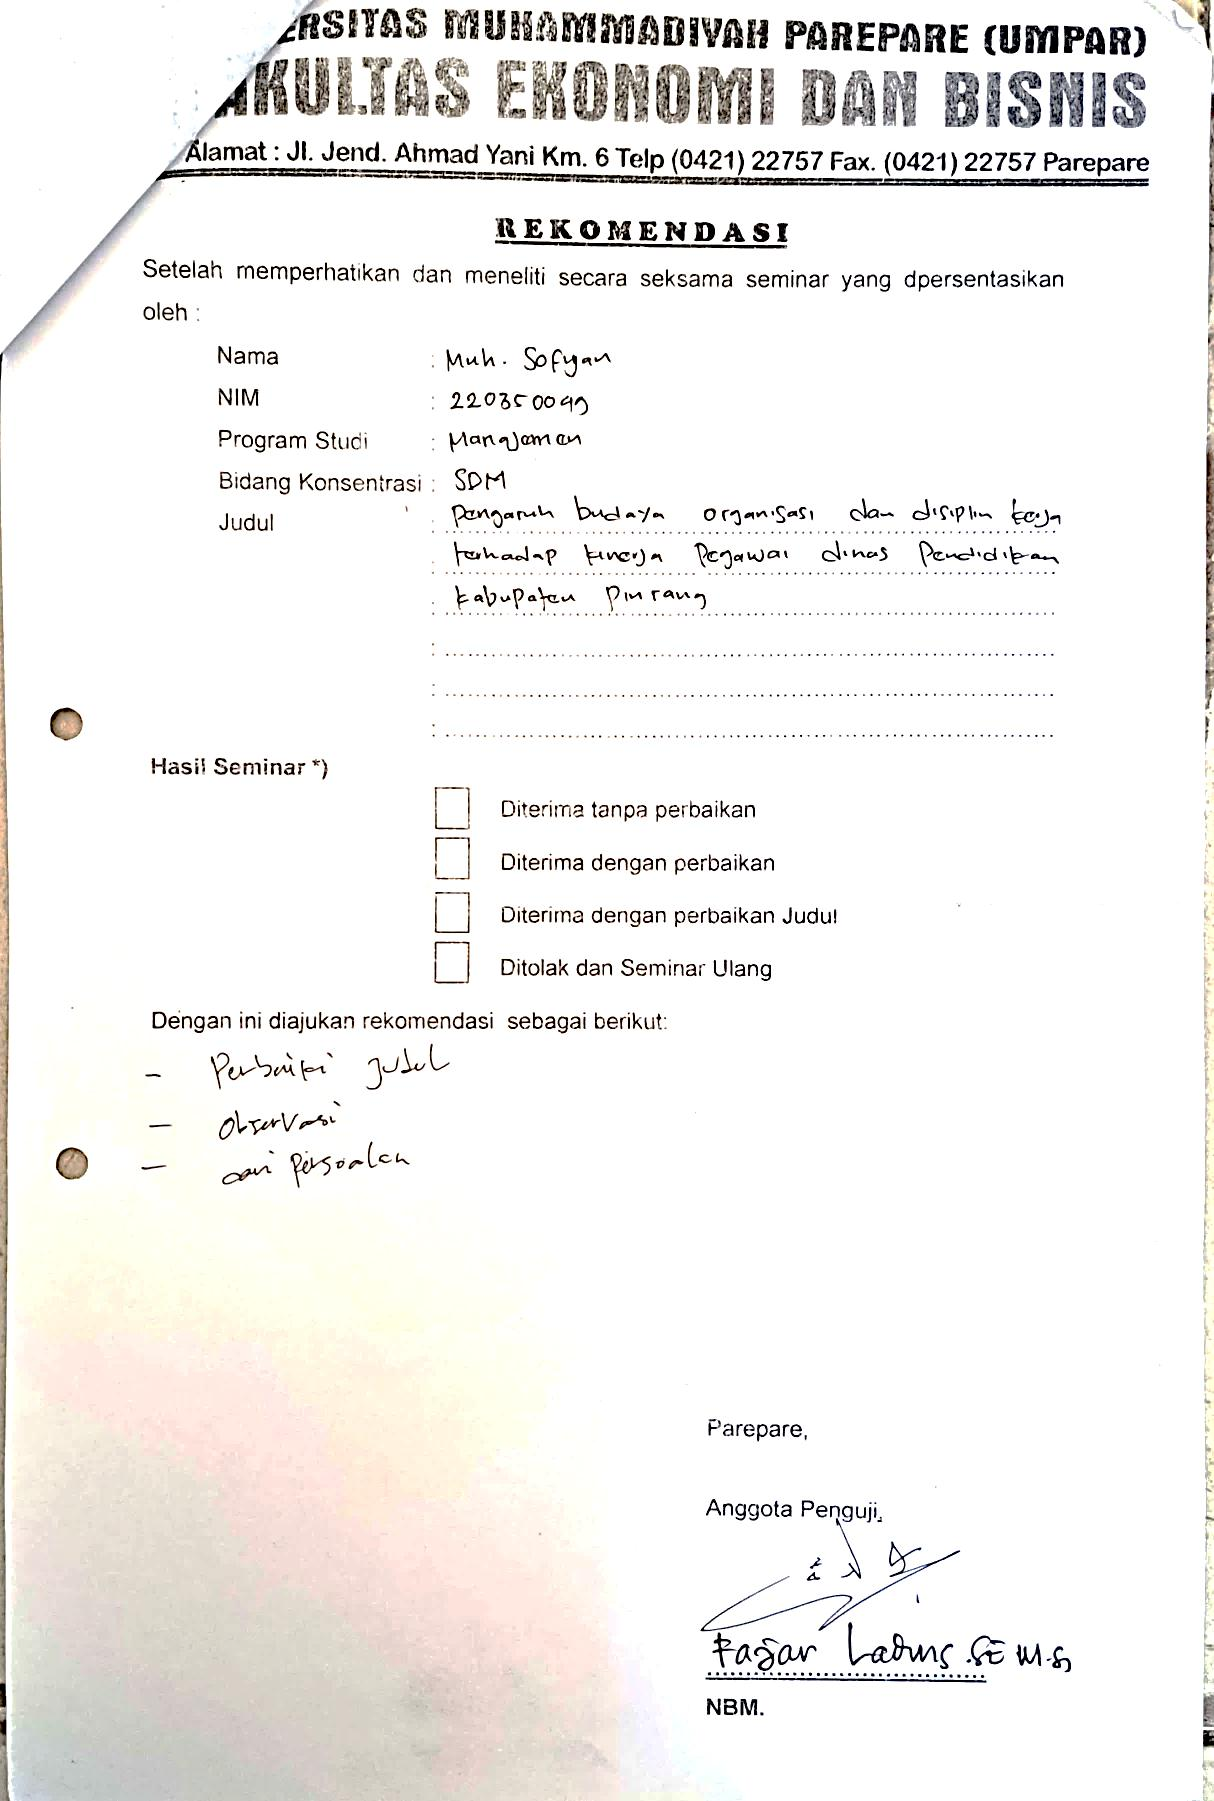 ERSITAS MUHAMMADIYAH PAREPARE (UMPAR)
AKULTAS EKONOMI DAN BISNIS
Alamat : Jl. Jend. Ahmad Yani Km. 6 Telp (0421) 22757 Fax. (0421) 22757 Parepare
REKOMENDASI
Setelah memperhatikan dan meneliti secara seksama seminar yang dpersentasikan
oleh :
Nama : Muh. Sofyan
NIM : 220350049
Program Studi : Manajemen
Bidang Konsentrasi : SDM
Judul : Pengaruh budaya organisasi dan disiplin kerja
: terhadap kinerja Pegawai dinas Pendidikan
: kabupaten Pinrang
:
:
:
Hasil Seminar *)
Diterima tanpa perbaikan
Diterima dengan perbaikan
Diterima dengan perbaikan Judul
Ditolak dan Seminar Ulang
Dengan ini diajukan rekomendasi sebagai berikut:
- Perbaiki judul
- Observasi
- cari persoalan
Parepare,
Anggota Penguji,
Fajar Ladung SE M.Si
NBM.